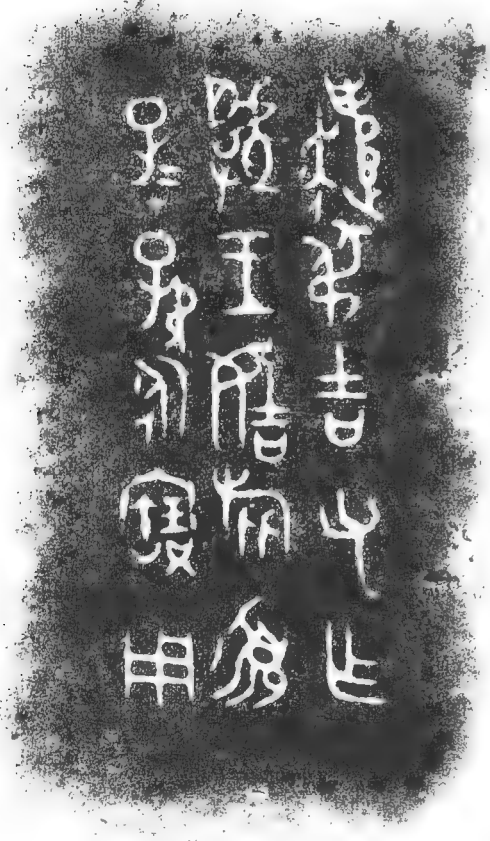 遣叔吉父乍
虢王姞旅盨
子=孫永寶用